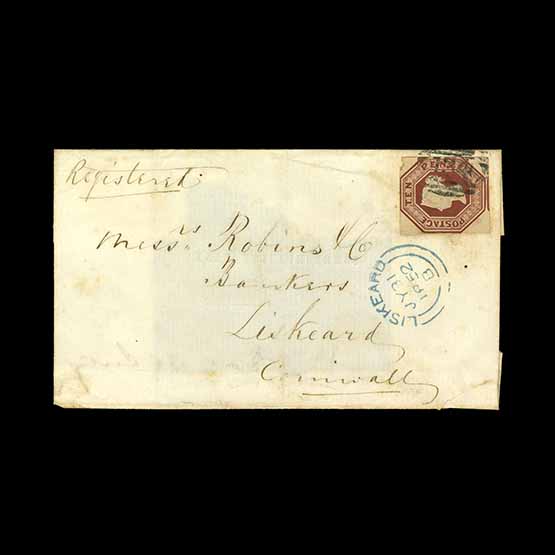 Registered
Mess.rs Robins & Co
Bankers
Liskeard
Cornwall
TEN PENCE
POSTAGE
LISKEARD
JY 31
1852
B